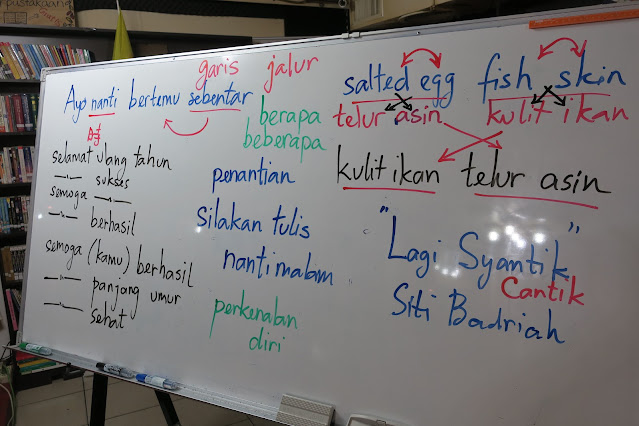 garis jalur
Ayo nanti bertemu sebentar
berapa
beberapa
selamat ulang tahun
—〃— sukses
semoga —〃—
—〃— berhasil
semoga (kamu) berhasil
—〃— panjang umur
—〃— sehat
penantian
silakan tulis
nanti malam
perkenalan
diri
salted egg fish skin
telur asin kulit ikan
kulit ikan telur asin
"Lagi Syantik"
Cantik
Siti Badriah